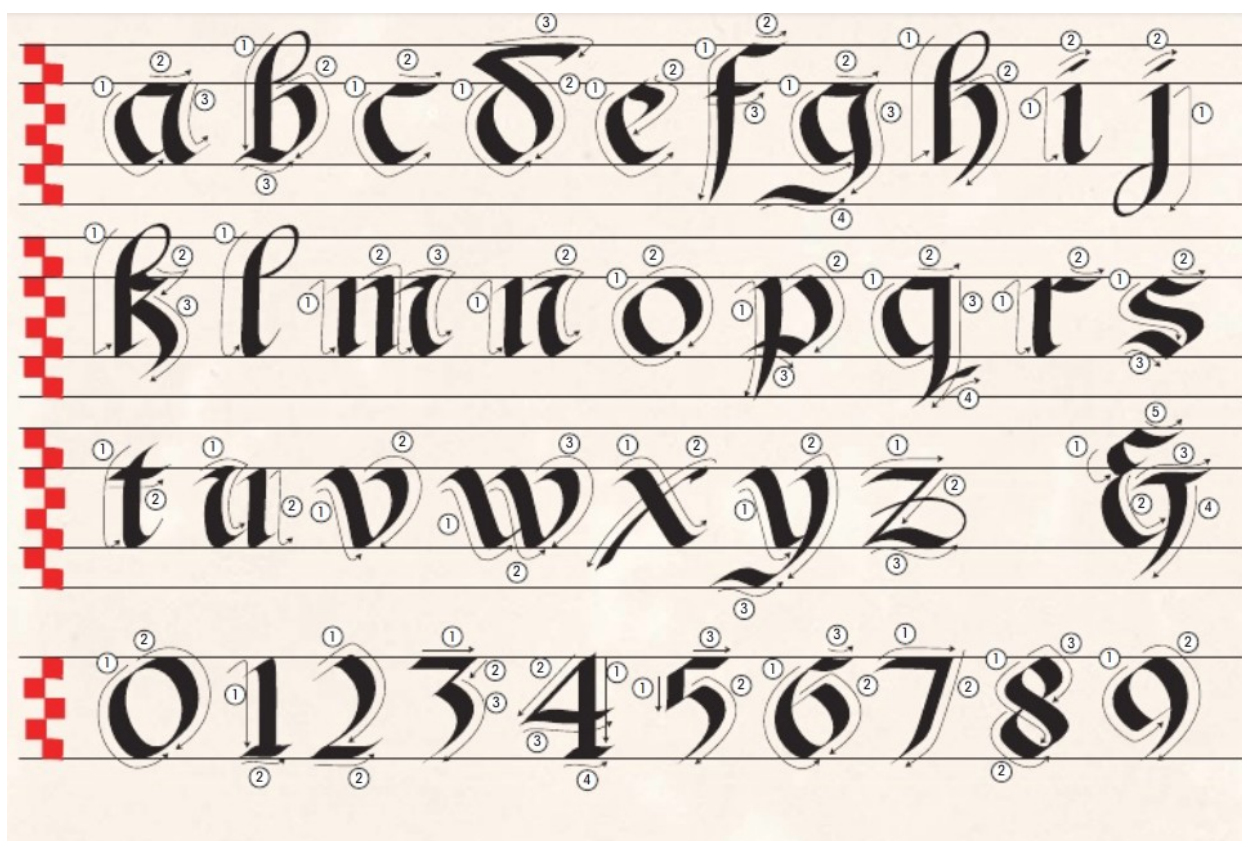 a b c d e f g h i j
k l m n o p q r s
t u v w x y z &
0 1 2 3 4 5 6 7 8 9